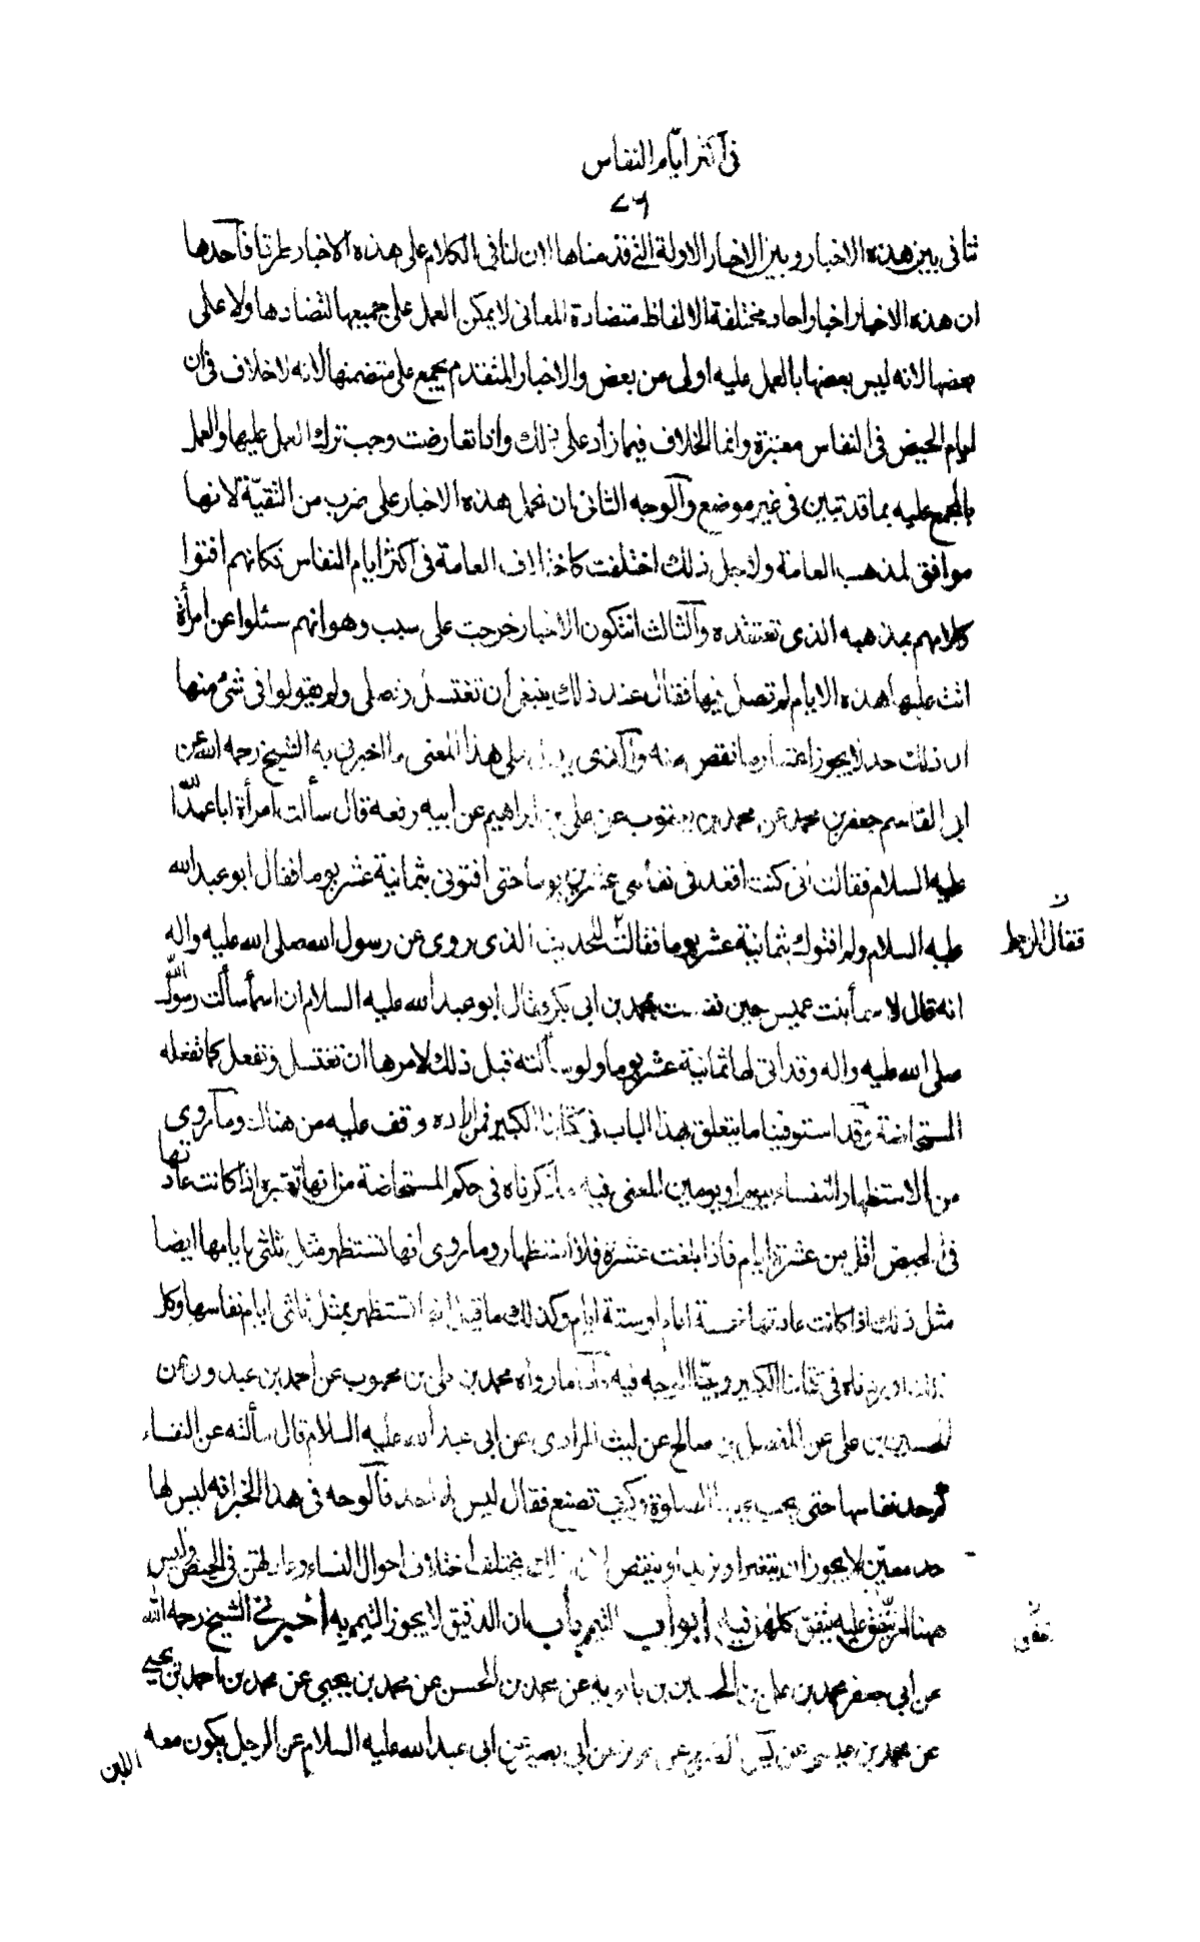 فى اكثر ايّام النفاس
٧٦
تنافى بين هذه الاخبار وبين الاخبار الاولة التى قدمناها لان لنا فى الكلام على هذه الاخبار طرقا فاحدها
ان هذه الاخبار اخبار احاد مختلفة الالفاظ متضادة المعانى لا يمكن العمل على جميعها لتضادها ولا على
بعضها لانه ليس بعضها بالعمل عليه اولى من بعض والاخبار المتقدم يجمع على متضمنها لانه لا خلاف فى ان
ايام الحيض فى النفاس معتبرة وانما الخلاف فيما زاد على ذلك واذا تعارضت وجب ترك العمل عليها والعمل
بالمجمع عليه بما قد تبين فى غير موضع والوجه الثانى ان نحمل هذه الاخبار على ضرب من التقيّة لانها
موافق لمذهب العامة ولاجل ذلك اختلفت كاختلاف العامة فى اكثر ايام النفاس فكانهم افتوا
كلامهم بمذهبه الذى تعتقده والثالث ان تكون الاخبار خرجت على سبب وهو انهم سئلوا عن امرأة
اتت عليها هذه الايام لم تصل فيها فقال عند ذلك ينبغى أن تغتسل وتصلى ولم يقولوا فى شئ منها
ان ذلك حد لا يجوز اعتبار ما نقص منه والذى يدل على هذا المعنى ما اخبرنى به الشيخ رحمه الله عن
ابى القاسم جعفر بن محمد عن محمد بن يعقوب عن على بن ابراهيم عن ابيه رفعه قال سألت امرأة ابا عبد الله
عليه السلام فقالت انى كنت اقعد فى نفاسى عشرين يوما حتى افتونى بثمانية عشر يوما فقال ابو عبد الله
عليه السلام ولم افتوك بثمانية عشر يوما فقالت للحديث الذى روى عن رسول الله صلى الله عليه واله
فقال الرجل
ن
انه قال لاسماء بنت عميس حين نفست بمحمد بن ابى بكر فقال ابو عبد الله عليه السلام ان اسماء سألت رسول الله
صلى الله عليه واله وقد اتى لها ثمانية عشر يوما ولو سألته قبل ذلك لامرها ان تغتسل وتفعل كما تفعله
المستحاضة وقد استوفينا ما يتعلق بهذا الباب فى كتابنا الكبير فمن اراده وقف عليه من هناك وما روى
من الاستظهار للنفساء بيوم او يومين المعنى فيه ما ذكرناه فى حكم المستحاضة من انها تعتبره اذا كانت عادتها
فى الحيض اقل من عشرة ايام فاذا بلغت عشرة فلا استظهار وما روى انها تستظهر مثل ثلثى ايامها ايضا
مثل ذلك اذا كانت عادتها خمسة ايام او ستة ايام وكذلك ما قيل انها تستظهر بمثل ثلثى ايام نفاسها وكل
ذلك اوردناه فى كتابنا الكبير وبيّنا الوجه فيه فأمّا ما رواه محمد بن على بن محبوب عن احمد بن عبدون عن
الحسين بن على عن المفضل بن صالح عن ليث المرادى عن ابى عبد الله عليه السلام قال سألته عن النفساء
كم حد نفاسها حتى يجب عليها الصلوة وكيف تصنع فقال ليس لها حد فالوجه فى هذا الخبر انه ليس لها
حد معيّن لا يجوز ان يتغير او يزيد او ينقص لان ذلك يختلف اختلاف احوال النساء وعادلهن فى الحيض وليس
ههنا امر يتّفق عليه يتفق كلهن فيه ابواب التيمم باب ان الدقيق لا يجوز التيمم به اخبرنى الشيخ رحمه الله
عن ابى جعفر محمد بن على بن الحسين بن بابويه عن محمد بن الحسن عن محمد بن يحيى عن محمد بن احمد بن يحيى
عن محمد بن عيسى عن يس الضرير عن حريز عن أبى بصير عن ابى عبد الله عليه السلام عن الرجل يكون معه
اللبن